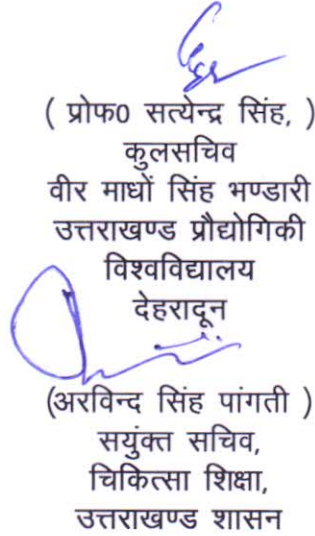 ( प्रोफ0 सत्येन्द्र सिंह, )
कुलसचिव
वीर माधों सिंह भण्डारी
उत्तराखण्ड प्रौद्योगिकी
विश्वविद्यालय
देहरादून
(अरविन्द सिंह पांगती )
सयुंक्त सचिव,
चिकित्सा शिक्षा,
उत्तराखण्ड शासन